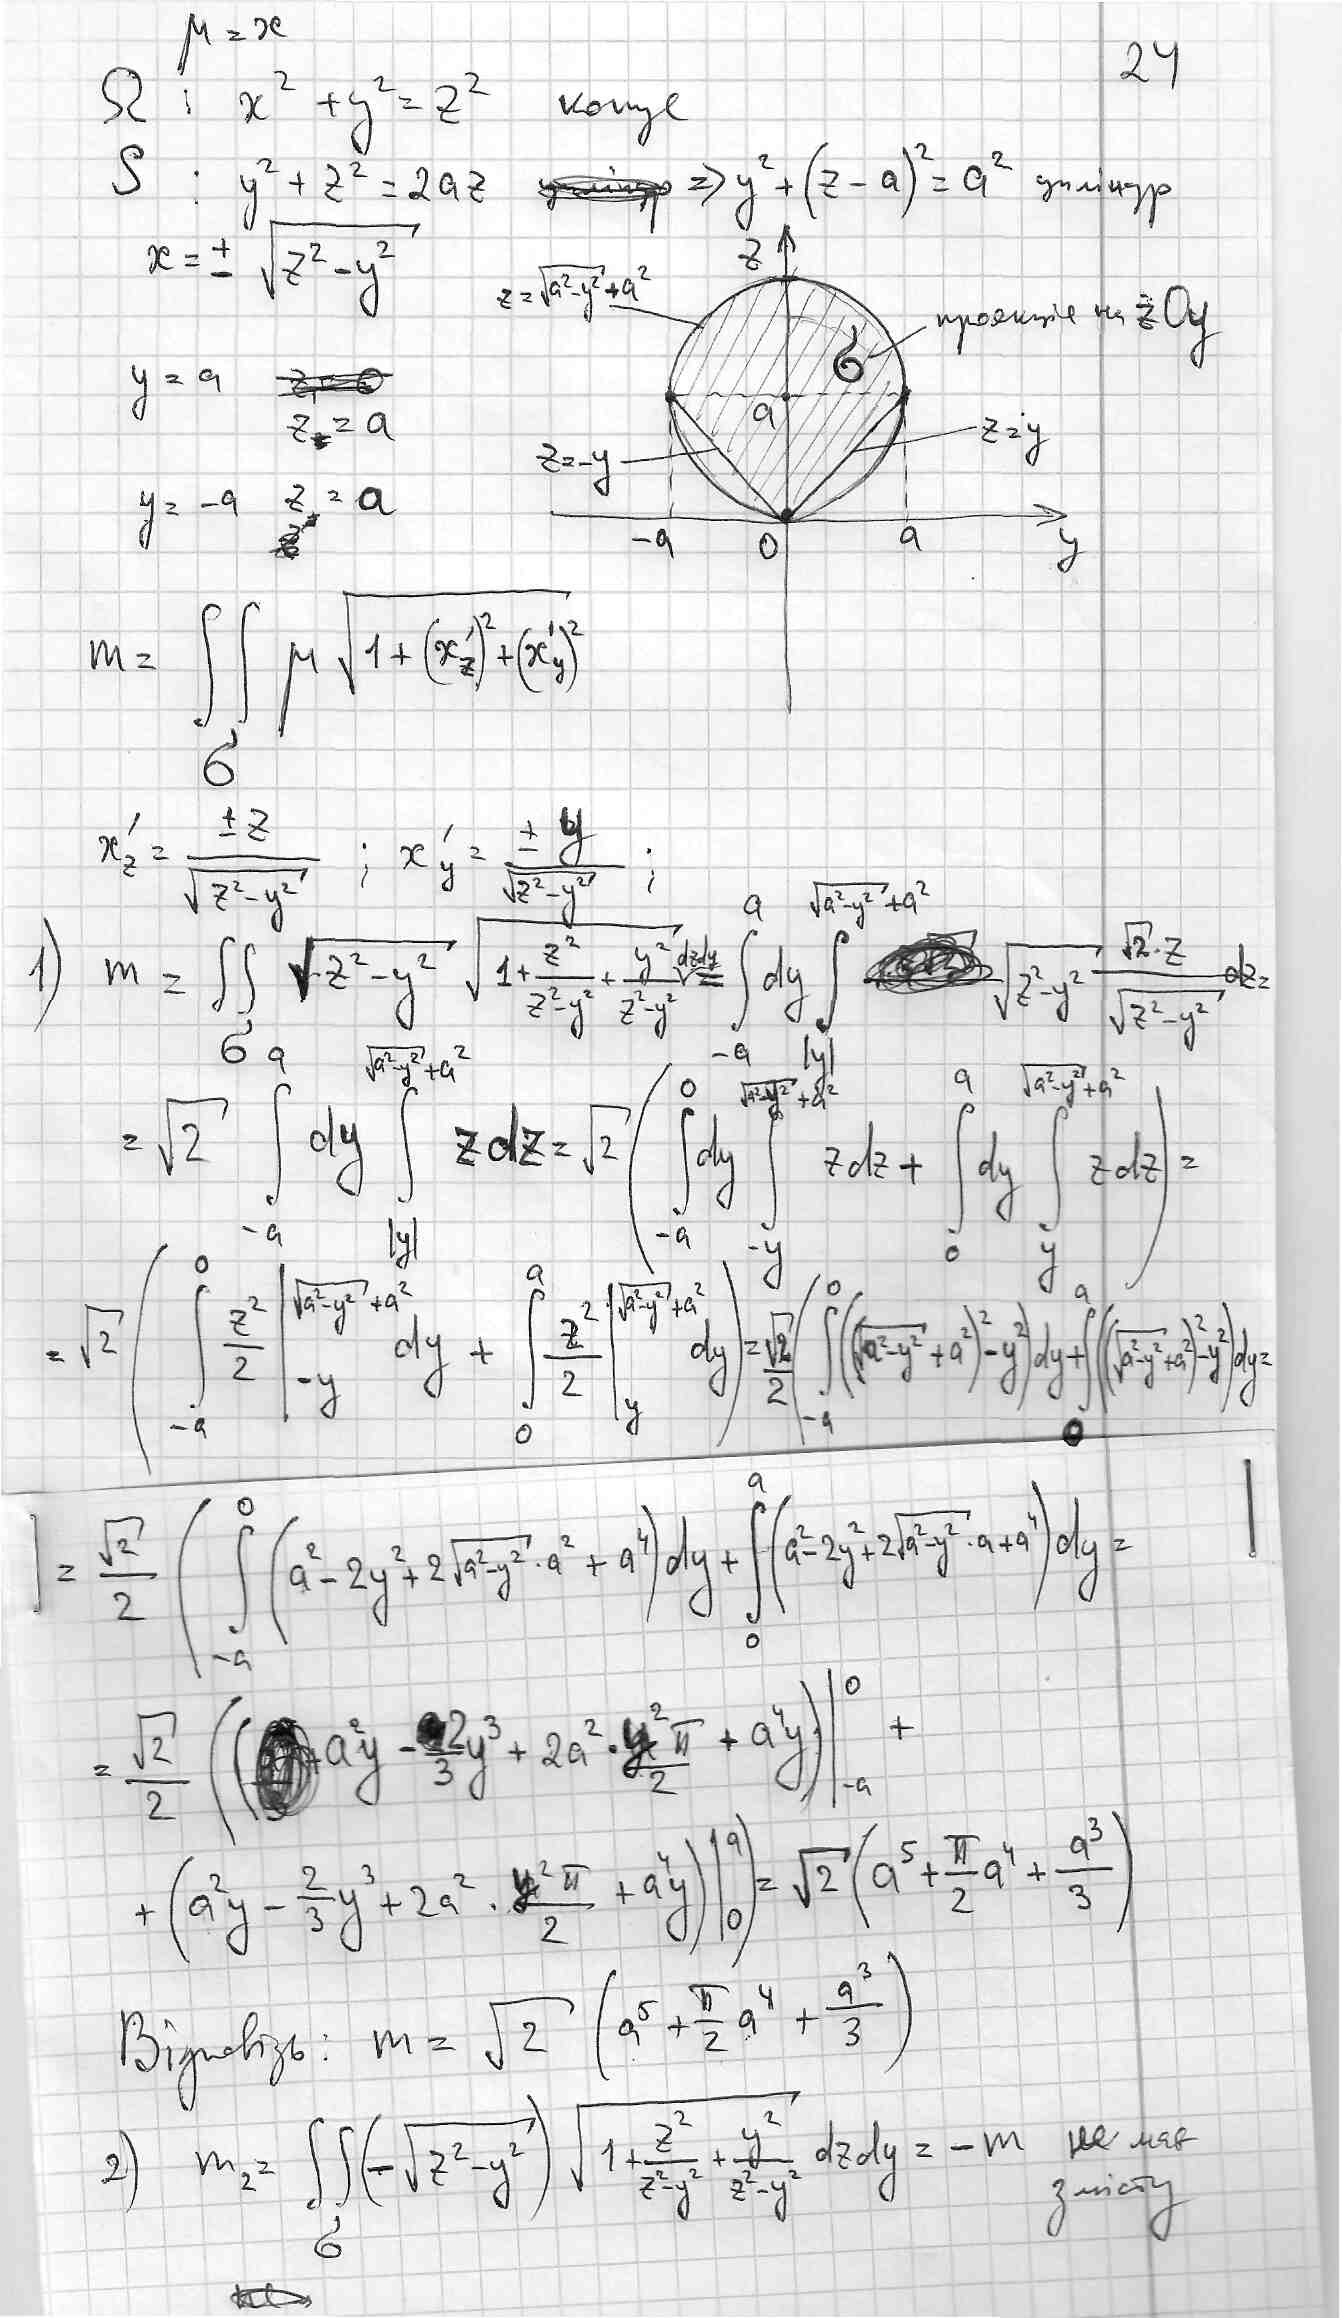 μ = x
24
Ω : x² + y² = z² конус
S : y² + z² = 2az ⇒ y² + (z − a)² = a² циліндр
x = ± √(z² − y²)
z
z = √(a²−y²) + a²
проекція на zOy
σ
y = a
z = a
a
z = y
z = −y
y = −a z = a
−a 0 a y
m = ∬_σ μ √(1 + (x'_z)² + (x'_y)²)
x'_z = ±z / √(z²−y²) ; x'_y = ±y / √(z²−y²) ;
1) m = ∬_σ √(z²−y²) √(1 + z²/(z²−y²) + y²/(z²−y²)) dzdy = ∫_{−a}^{a} dy ∫_{|y|}^{√(a²−y²)+a²} √(z²−y²) √2·z/√(z²−y²) dz =
= √2 ∫_{−a}^{a} dy ∫_{|y|}^{√(a²−y²)+a²} z dz = √2 ( ∫_{−a}^{0} dy ∫_{−y}^{√(a²−y²)+a²} z dz + ∫_{0}^{a} dy ∫_{y}^{√(a²−y²)+a²} z dz ) =
= √2 ( ∫_{−a}^{0} z²/2 |_{−y}^{√(a²−y²)+a²} dy + ∫_{0}^{a} z²/2 |_{y}^{√(a²−y²)+a²} dy ) = √2/2 ( ∫_{−a}^{0} ((√(a²−y²)+a²)² − y²) dy + ∫_{0}^{a} ((√(a²−y²)+a²)² − y²) dy =
= √2/2 ( ∫_{−a}^{0} (a² − 2y² + 2√(a²−y²)·a² + a⁴) dy + ∫_{0}^{a} (a² − 2y² + 2√(a²−y²)·a + a⁴) dy =
= √2/2 (( + a²y − 2/3 y³ + 2a²·y²π/2 + a⁴y) |_{−a}^{0} +
+ (a²y − 2/3 y³ + 2a²·y²π/2 + a⁴y) |_{0}^{a} ) = √2 (a⁵ + π/2 a⁴ + a³/3)
Відповізь: m = √2 (a⁵ + π/2 a⁴ + a³/3)
2) m₂ = ∬_σ (−√(z²−y²)) √(1 + z²/(z²−y²) + y²/(z²−y²)) dzdy = −m не має
змісту